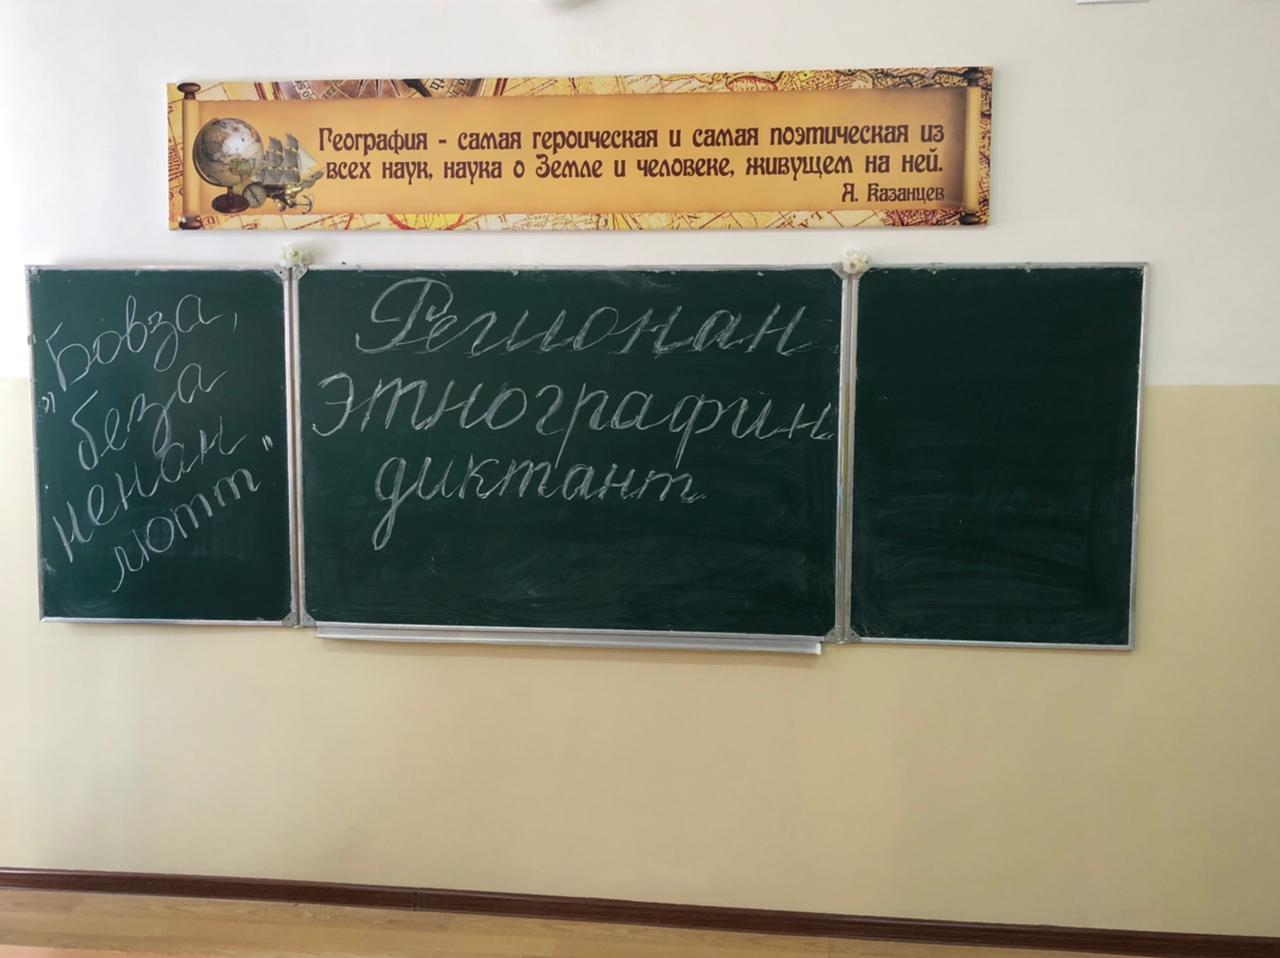 География - самая героическая и самая поэтическая из
всех наук, наука о Земле и человеке, живущем на ней.
Я. Казанцев
„Бовза,
беза
ненан
мотт"
Регионан
этнографин
диктант